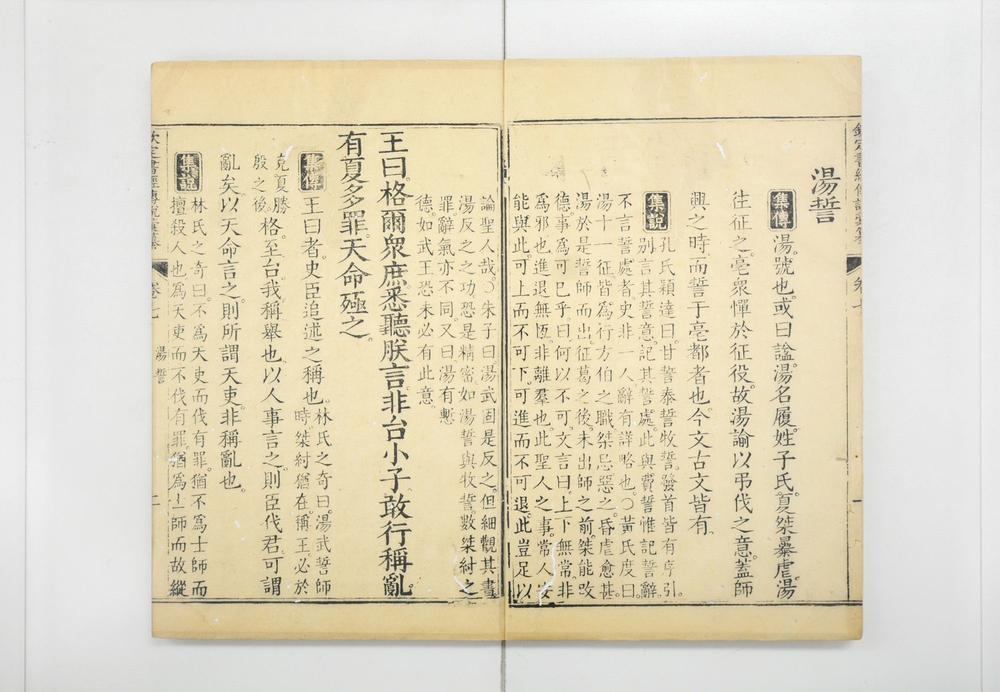 湯誓
集傳 湯號也或曰謚湯名履姓子氏夏桀暴虐湯
往征之亳衆憚於征役故湯諭以弔伐之意蓋師
興之時而誓于亳都者也今文古文皆有
集說 孔氏穎達曰甘誓泰誓牧誓發首皆有序引
別言其誓意記其誓處此與費誓惟記誓辭
不言誓處者史非一人辭有詳略也○黃氏度曰
湯十一征皆為行方伯之職桀忌惡之昏虐愈甚
湯於是誓師而出征葛之後未出師之前桀能改
德事為可已乎曰何以不可文言曰上下無常非
為邪也進退無恆非離羣也此聖人之事常人安
能與此可上而不可下可進而不可退此豈足以
論聖人哉○朱子曰湯武固是反之但細觀其書
湯反之之功恐是精密如湯誓與牧誓數桀紂之
罪辭氣亦不同又曰湯有慙
德如武王恐未必有此意
王曰格爾衆庶悉聽朕言非台小子敢行稱亂
有夏多罪天命殛之
集傳 王曰者史臣追述之稱也 林氏之奇曰湯武誓師
時桀紂猶在稱王必於
克夏勝
殷之後 格至台我稱舉也以人事言之則臣伐君可謂
亂矣以天命言之則所謂天吏非稱亂也
集說 林氏之奇曰不為天吏而伐有罪猶不為士師而
擅殺人也為天吏而不伐有罪猶為士師而故縱
欽定書經傳說彙纂
卷七
湯誓
二
欽定書經傳說彙纂
卷七
一